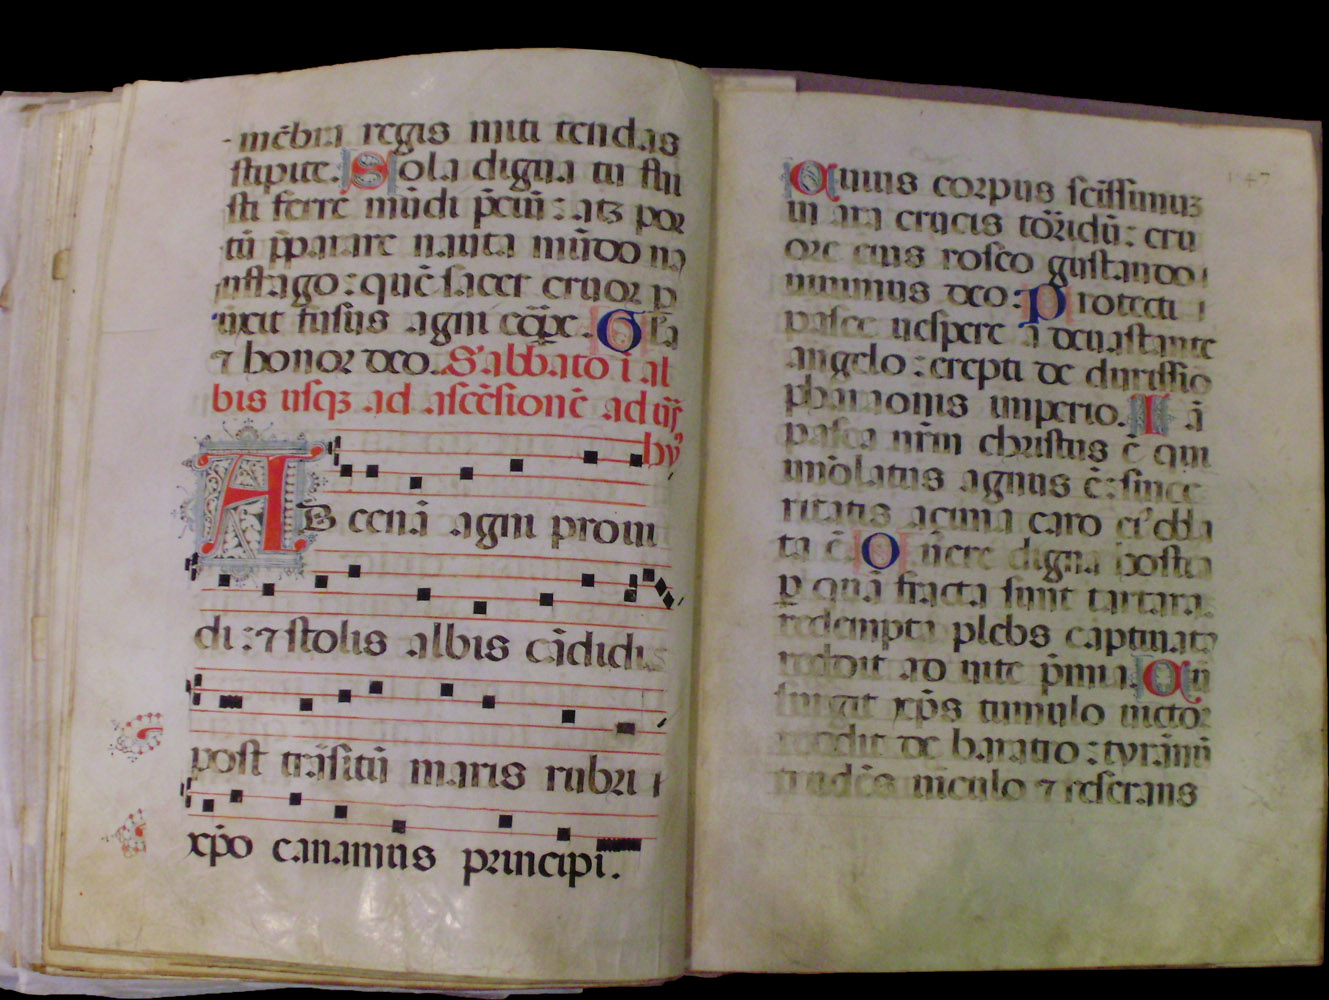 mēbra regis miti tendas
stipite. Sola digna tu fui
sti ferre mūdi p̄ciū: atꝫ por
tū p̄parare nauta mūdo na
ufrago: quē sacer cruor ꝑ
ūxit fusus agni corꝑe. Glā
⁊ honor deo. Sabbato ī al
bis usqꝫ ad ascēsionē ad ūs̄
hy'
AD cenā agni proui
di: ⁊ stolis albis cādidi
post trāsitū maris rubri
xp̄o canamus principi.
147
Cuius corpus sctīssimuꝫ
in ara crucis tōridū: cru
ore eius roseo gustando
uiuimus deo: Protecti
pasce uespere a deuastante
angelo: erepti de durissio
pharaonis imperio. Iā
pasca nr̄m christus ē qui
īmolatus agnus ē: since
ritatis açima caro ei' obla
ta ē. O uere digna hostia
ꝑ quā fracta sunt tartara
redempta plebs captiuata
reddit ad uite p̄mia. Cū
surgit xp̄s tumulo uictor
redit de baratro: tyrānū
trudēs uīculo ⁊ reserans